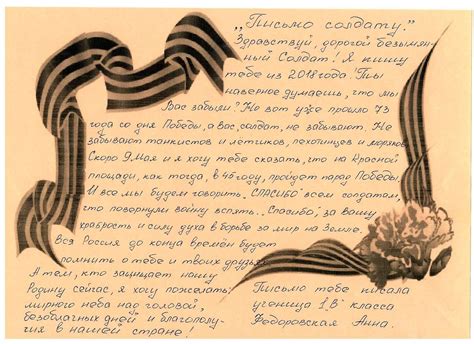 „Письмо солдату."
Здравствуй, дорогой безымян-
ный Солдат! Я пишу
тебе из 2018 года! Ты
наверное думаешь, что мы
Вас забыли? Но вот уже прошло 73
года со дня Победы, а Вас, солдат, не забывают. Не
забывают танкистов и летчиков, пехотинцев и моряков.
Скоро 9 Мая и я хочу тебе сказать, что на Красной
площади, как тогда, в 45 году, пройдет парад Победы.
И все мы будем говорить „СПАСИБО" всем солдатам,
что повернули войну вспять. „Спасибо", за вашу
храбрость и силу духа в борьбе за мир на Земле.
Вся Россия до конца времён будет
помнить о тебе и твоих друзьях.
А тем, кто защищает нашу
Родину сейчас, я хочу пожелать:
мирного неба над головой,
безоблачных дней и благополу-
чия в нашей стране!
Письмо тебе писала
ученица 1„В" класса
Федоровская Анна.